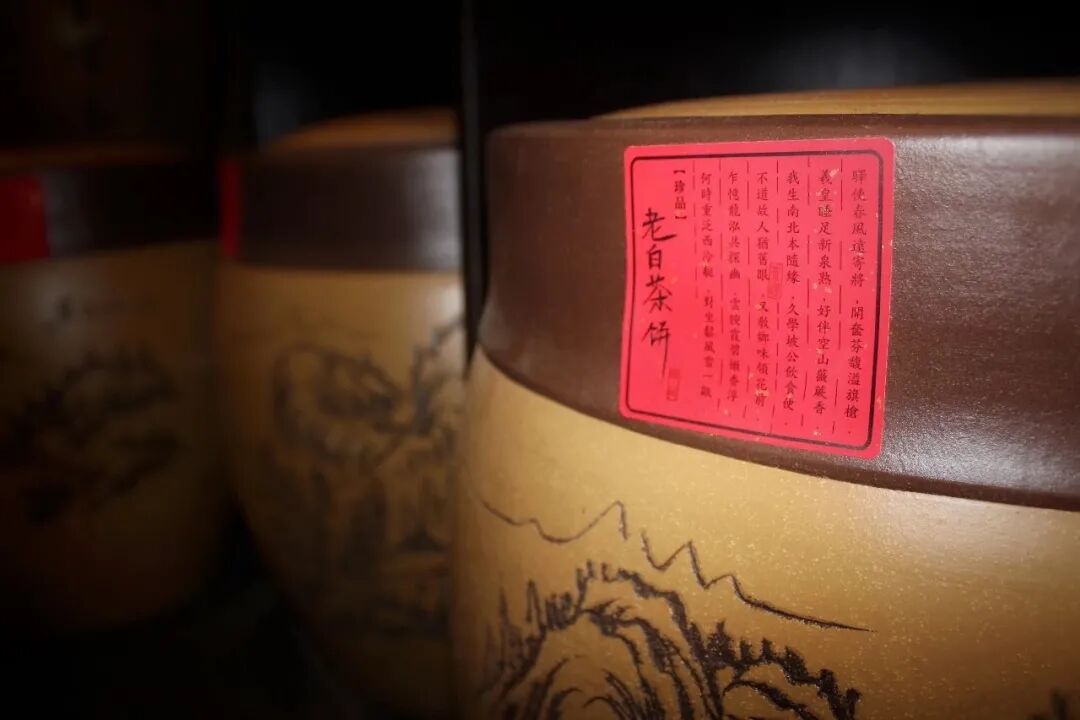 驛使春風遠寄將，開奩芬馥溢旗槍，
義皇睡足新泉熟，好伴空山薇蕨香，
我生南北本隨緣，久學坡公飲食便，
不道故人猶舊眼，又教鄉味領花前，
乍憶龍泓共探幽，雲腴霞碧嫩香浮，
何時重泛西泠艇，對坐鬆風雪一甌
【珍品】
老白茶饼